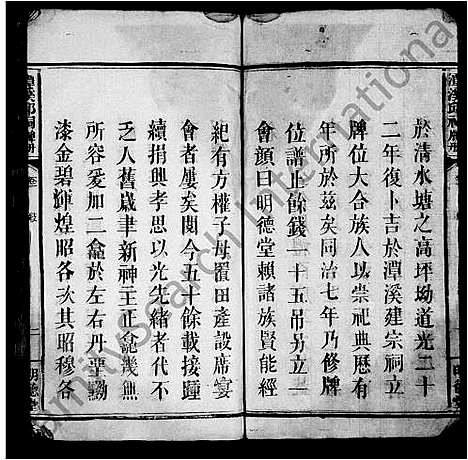 於清水塘之高坪坳道光二十
二年復卜吉於潭溪建宗祠立
牌位大合族人以崇祀典歷有
年所於兹矣同治七年乃修牌
位譜止餘錢一十五吊另立一
會顔曰明德堂賴諸族賢能經
紀有方權子母置田產設席宴
會者屢矣閱今五十餘載接踵
續捐興孝思以光先緒者代不
乏人舊歲聿新神主正龕幾無
所容爰加二龕於左右丹堊黝
漆金碧輝煌昭各次其昭穆各
明德堂
familysearch international